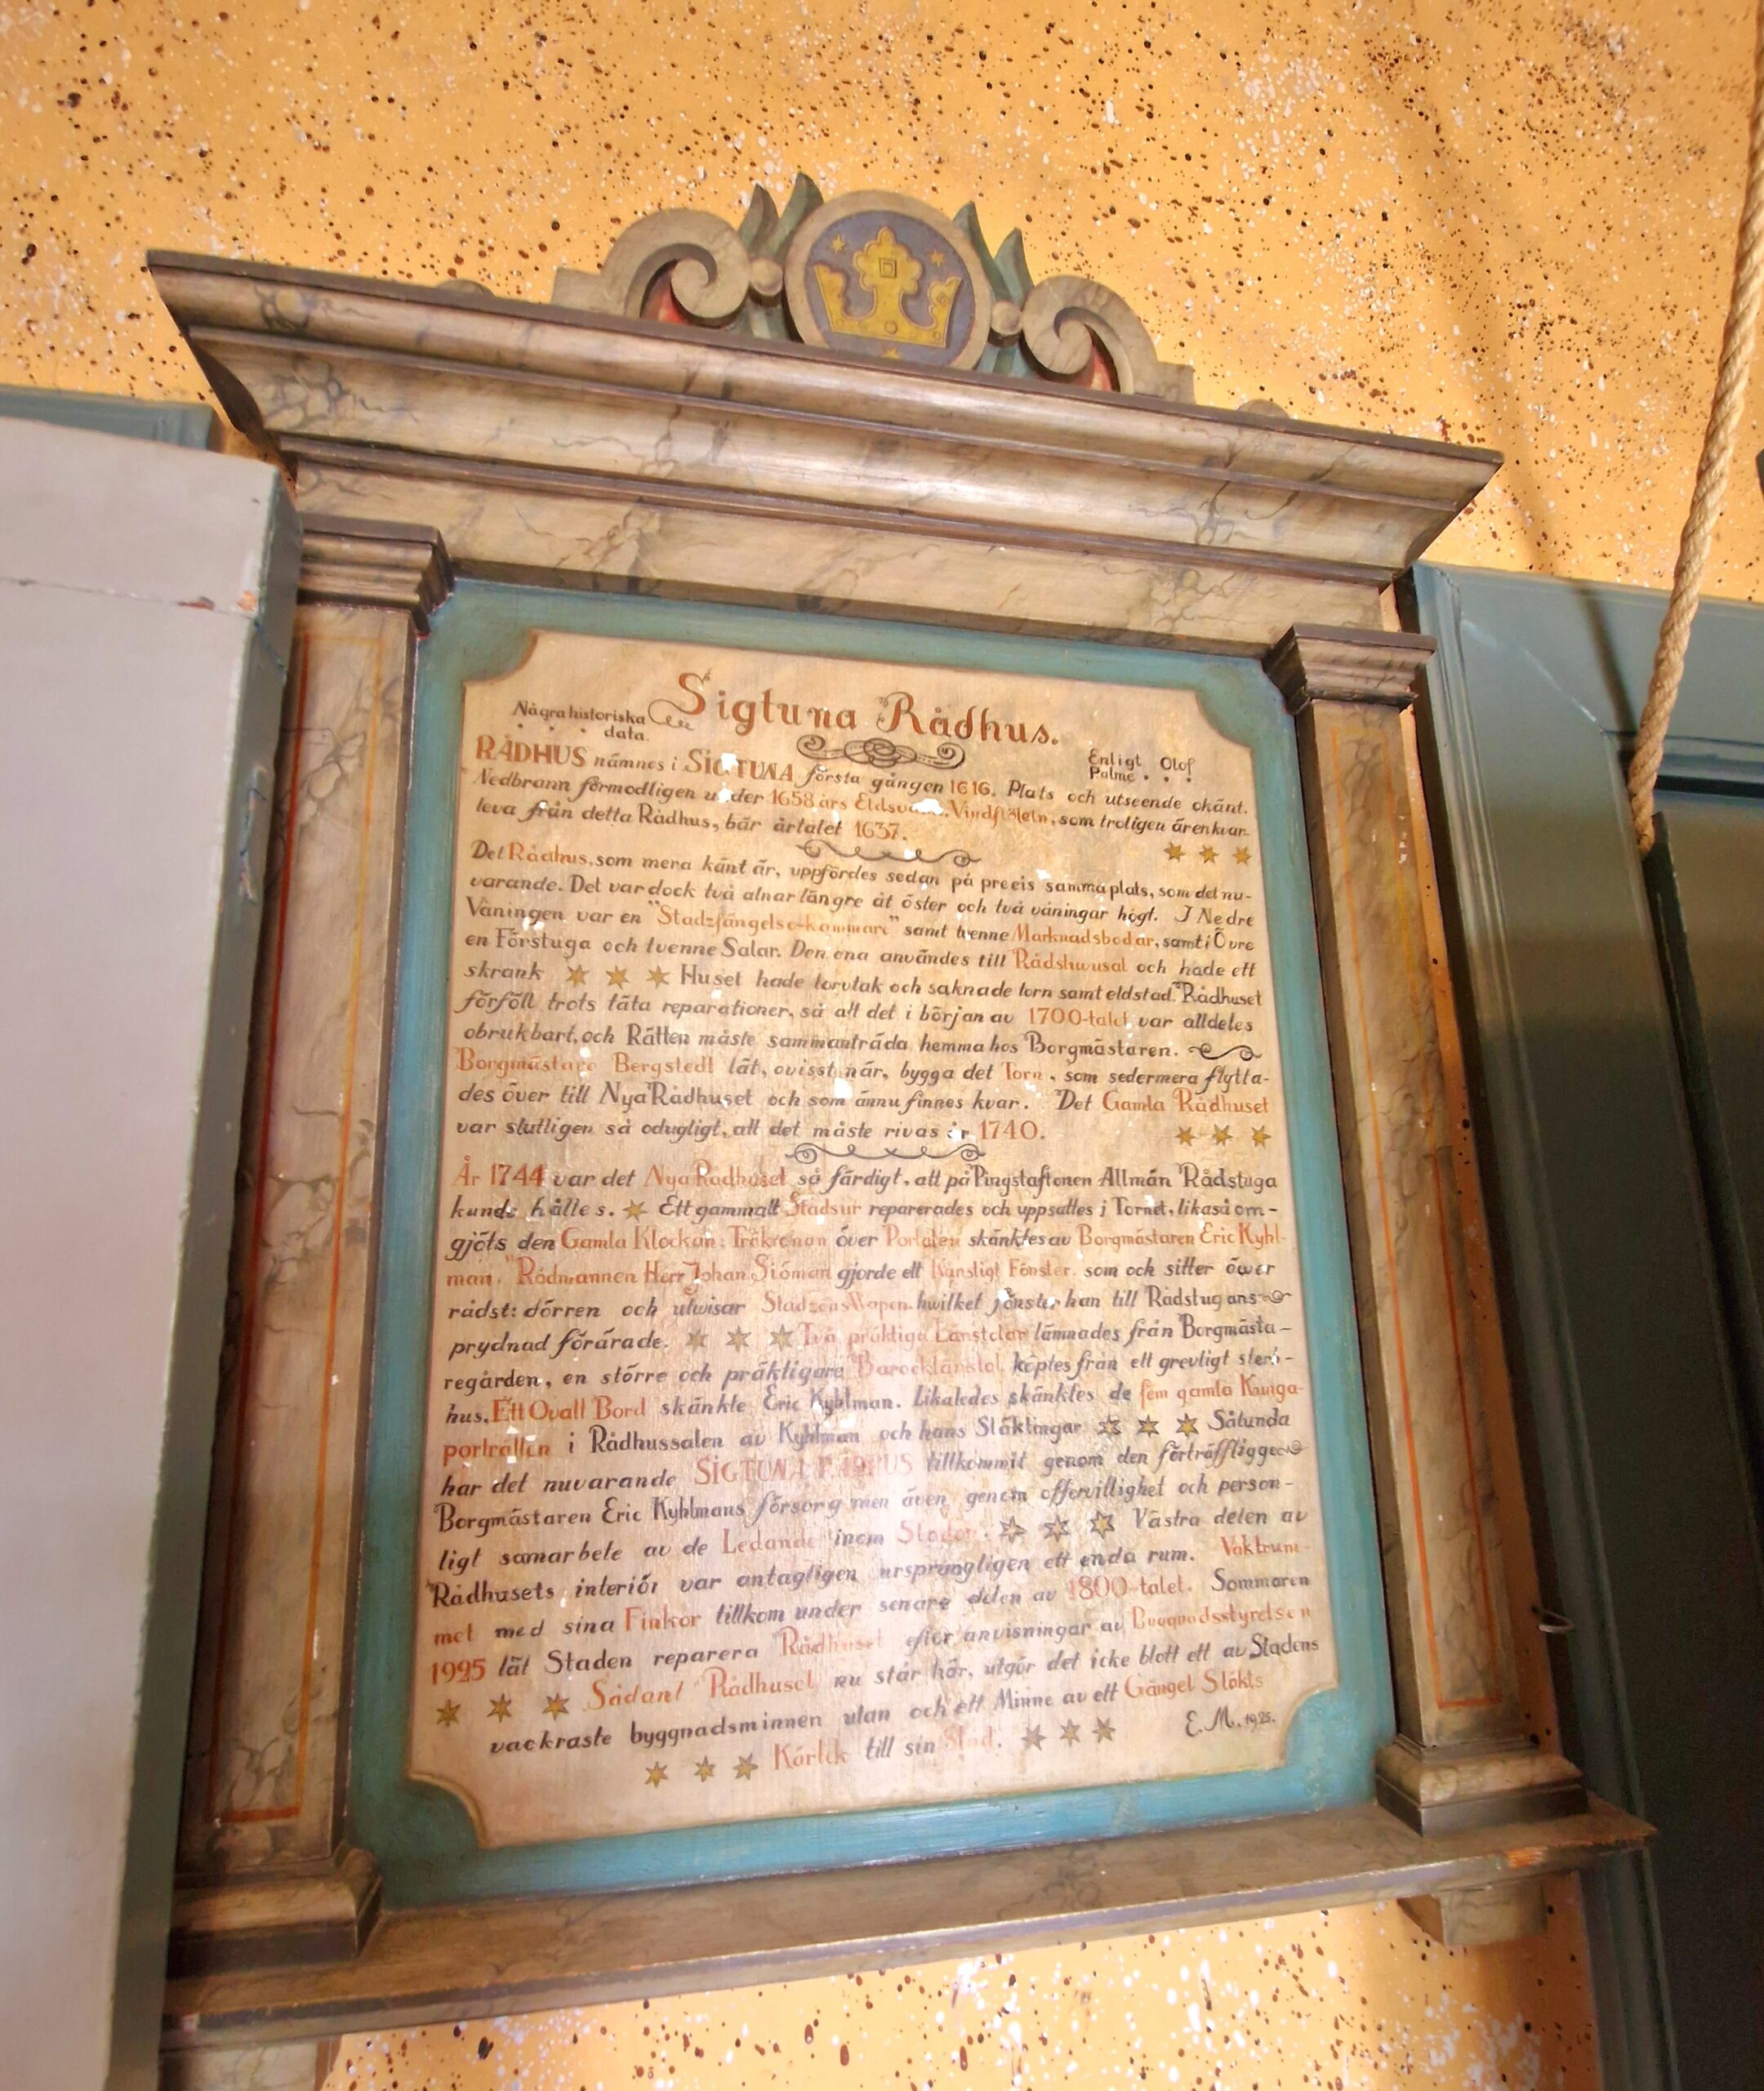 Sigtuna Rådhus.
Några historiska
data.
Enligt Olof
Palme . . .
RÅDHUS nämnes i SIGTUNA första gången 1616. Plats och utseende okänt.
Nedbrann förmodligen under 1658 års Eldsvåda. Vindflöjeln, som troligen är enkvar-
leva från detta Rådhus, bär årtalet 1637.
Det Rådhus, som mera känt är, uppfördes sedan på precis samma plats, som det nu-
varande. Det var dock två alnar längre åt öster och två våningar högt. I Nedre
Våningen var en "Stadzfängelse-kammare" samt tvenne Marknadsbodar, samt i Övre
en Förstuga och tvenne Salar. Den ena användes till Rådshuusal och hade ett
skrank Huset hade torvtak och saknade torn samt eldstad. Rådhuset
förföll trots täta reparationer, så att det i början av 1700-talet var alldeles
obrukbart, och Rätten måste sammanträda hemma hos Borgmästaren.
Borgmästare Bergstedt lät, ovisst när, bygga det Torn, som sedermera flytta-
des över till Nya Rådhuset och som ännu finnes kvar. Det Gamla Rådhuset
var slutligen så odugligt, att det måste rivas år 1740.
År 1744 var det Nya Rådhuset så färdigt, att på Pingstaftonen Allmän Rådstuga
kunde hålles. Ett gammalt Stadsur reparerades och uppsattes i Tornet, likaså om-
gjöts den Gamla Klockan. Träkronan över Portalen skänktes av Borgmästaren Eric Kyhl-
man. "Rådmannen Herr Johan Siöman gjorde ett Kånsligt Fönster, som och sitter öwer
rådst: dörren och utwisar Stadzens Wapen. hwilket fönster han till Rådstugans
prydnad förärade. Två präktiga Länstolar lämnades från Borgmästa-
regården, en större och präktigare Barocklänstol köptes från ett grevligt sterb-
hus. Ett Ovalt Bord skänkte Eric Kyhlman. Likaledes skänktes de fem gamla Kunga-
porträtten i Rådhussalen av Kyhlman och hans Släktingar Sålunda
har det nuvarande SIGTUNA RÅDHUS tillkommit genom den förträfflige
Borgmästaren Eric Kyhlmans försorg men även genom offervillighet och person-
ligt samarbete av de Ledande inom Staden. Västra delen av
Rådhusets interiör var antagligen ursprungligen ett enda rum. Vaktrum-
met med sina Finkor tillkom under senare delen av 1800-talet. Sommaren
1925 lät Staden reparera Rådhuset efter anvisningar av Byggnadsstyrelsen
Sådant Rådhuset nu står här, utgör det icke blott ett av Stadens
vackraste byggnadsminnen utan och ett Minne av ett Gånget Släkts
Kärlek till sin Stad.
E. M. 1925.